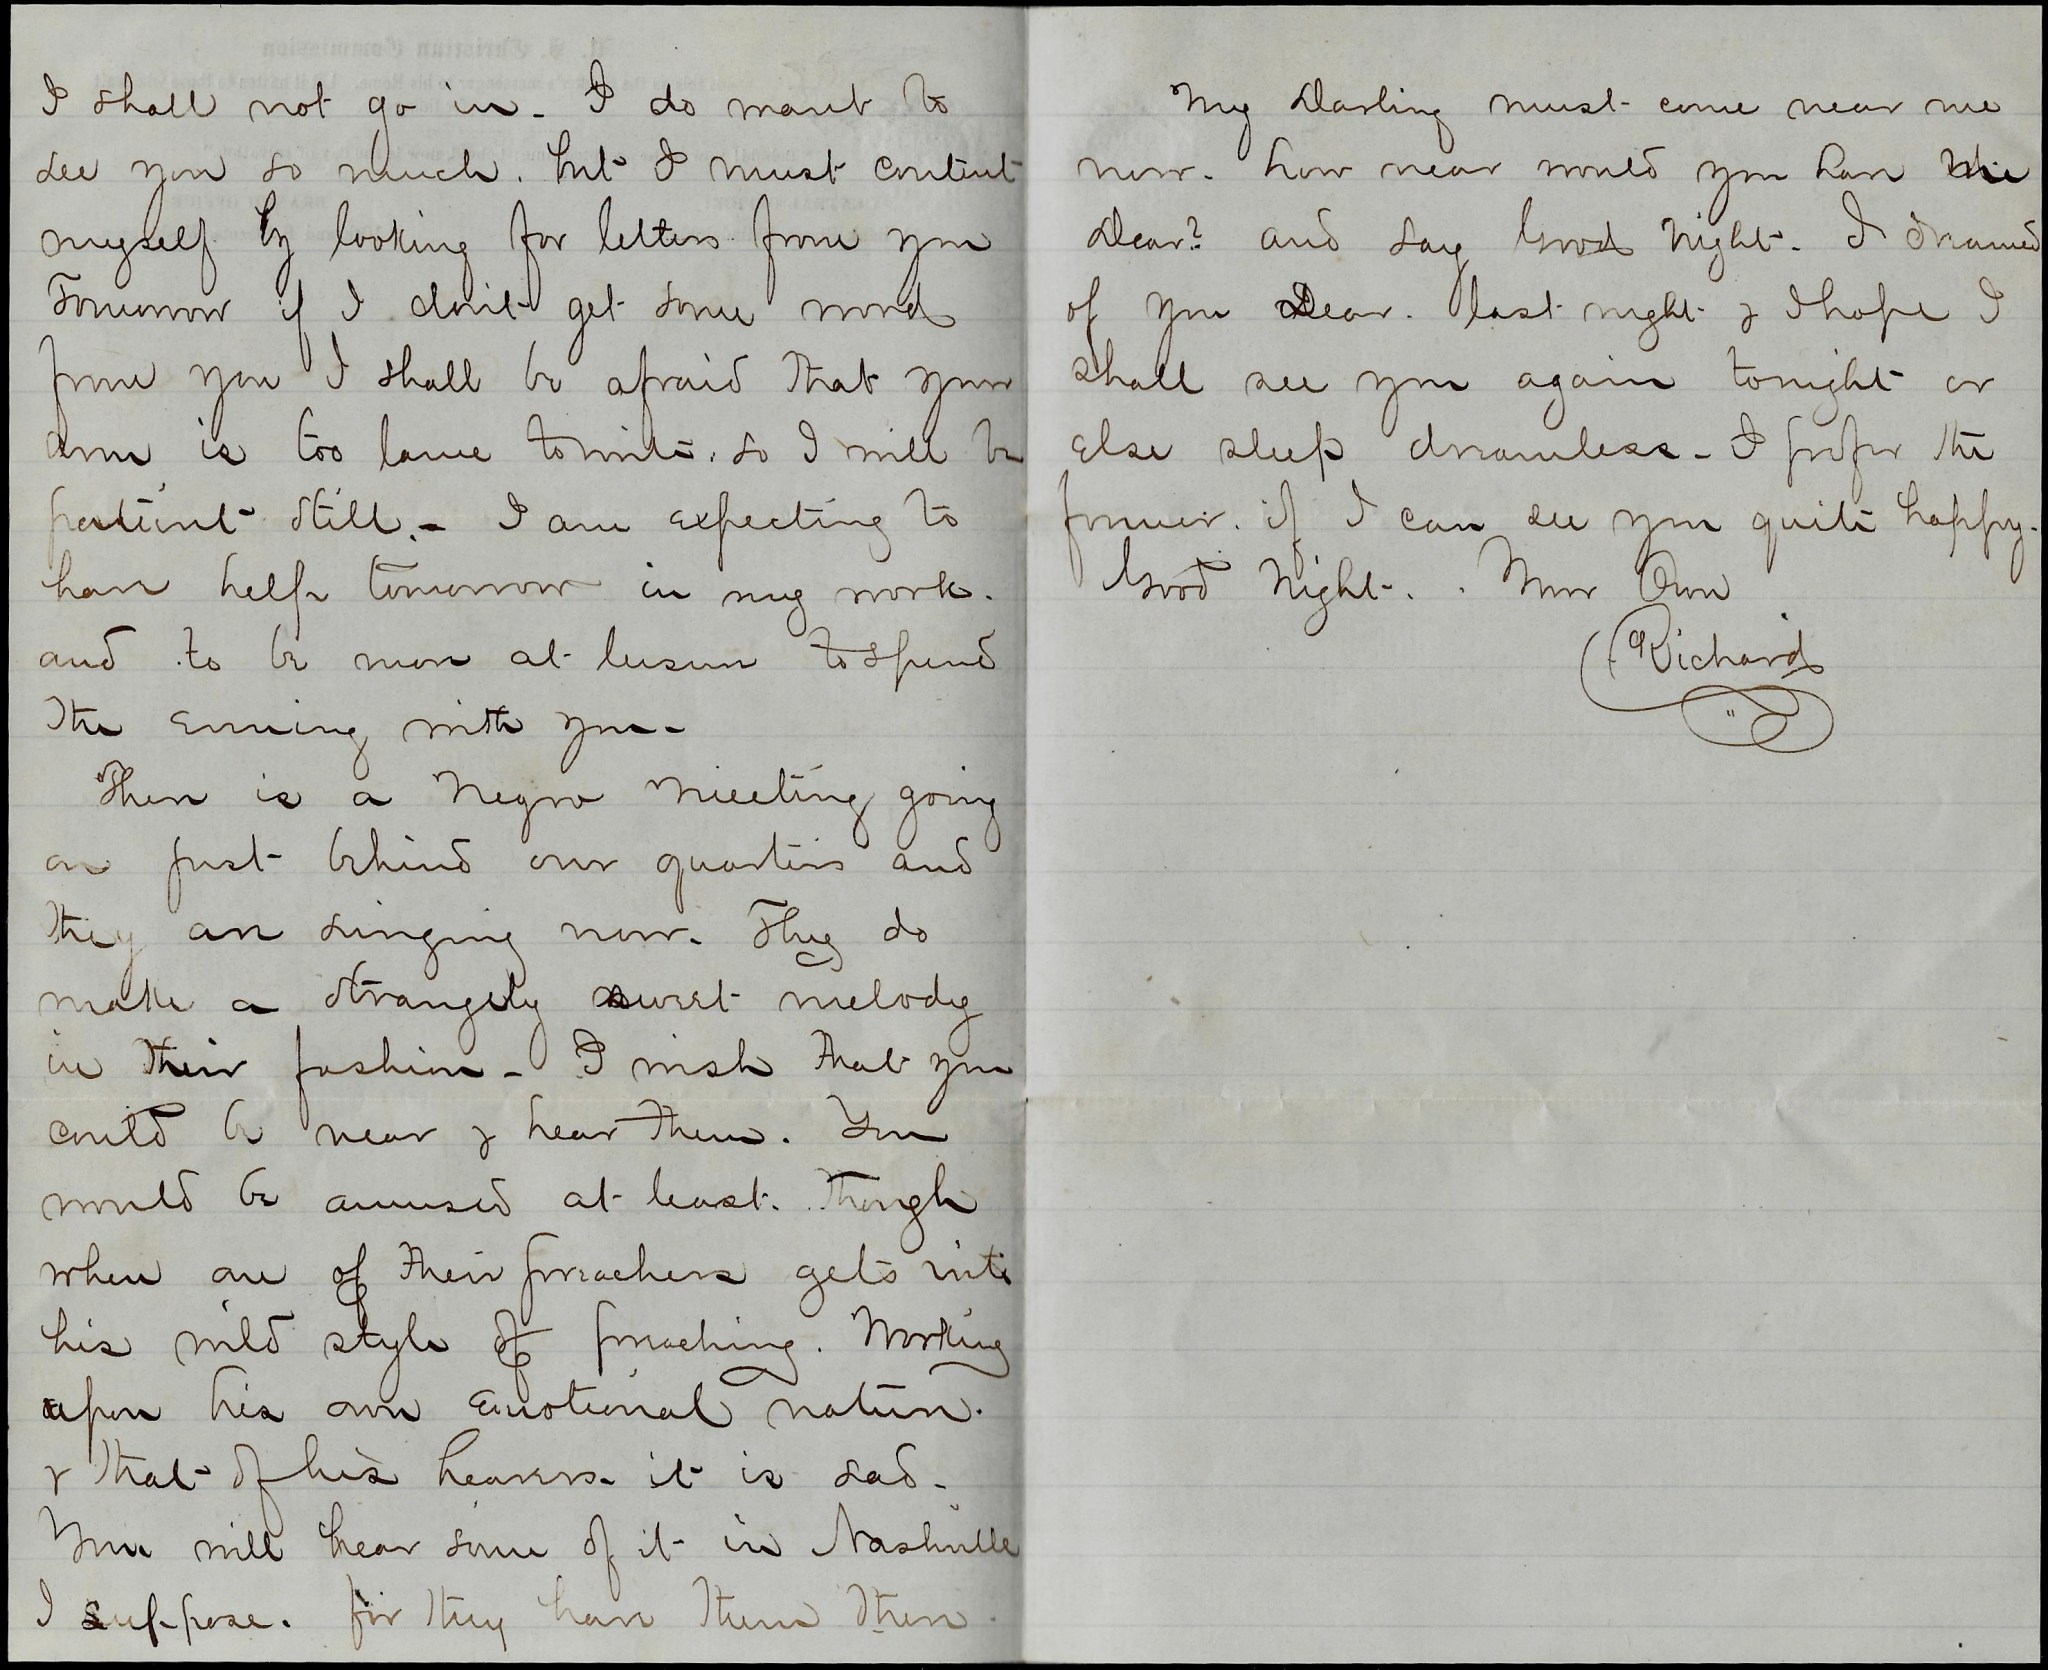 I shall not go in - I do want to
see you so much. but I must content
myself by looking for letters from you
Tomorrow if I don't get some word
from you I shall be afraid that your
arm is too lame to write. so I will be
patient still. - I am expecting to
have help tomorrow in my work.
and to be more at leisure to spend
the evening with you -
There is a Negro Meeting going
on just behind our quarters and
they are singing now. They do
make a strangely sweet melody
in their fashion - I wish that you
could be near & hear them. You
would be amused at least. Though
when one of their preachers gets into
his wild style of preaching. Working
upon his own emotional nature.
& that of his hearers - it is sad -
You will hear some of it in Nashville
I suppose. for they have them there.
My Darling must come near me
now. how near would you have me
Dear? and say Good Night. I dreamed
of you Dear. last night & I hope I
shall see you again tonight or
else sleep dreamless - I prefer the
former. if I can see you quite happy.
Good Night. . Your Own
Richard